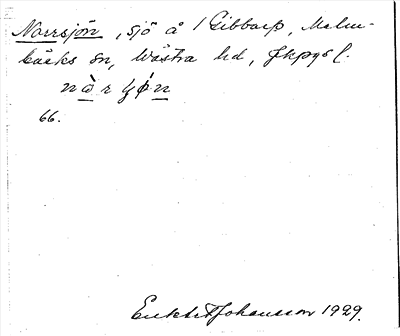 Norrsjön, sjö å 1 Gibbarp, Malm-
bäcks sn, Västra hd, Jkpgs l.
n ò r ɧ ó n
66.
Johansson 1929.